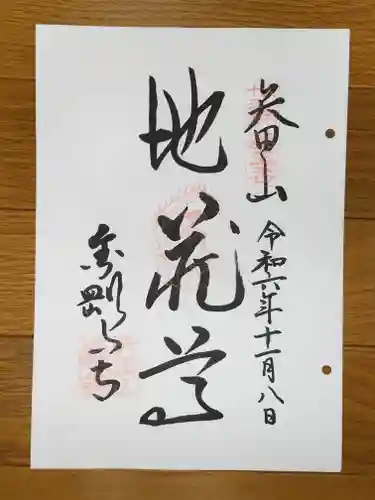 矢田山
令和六年十一月八日
地蔵尊
金剛山寺